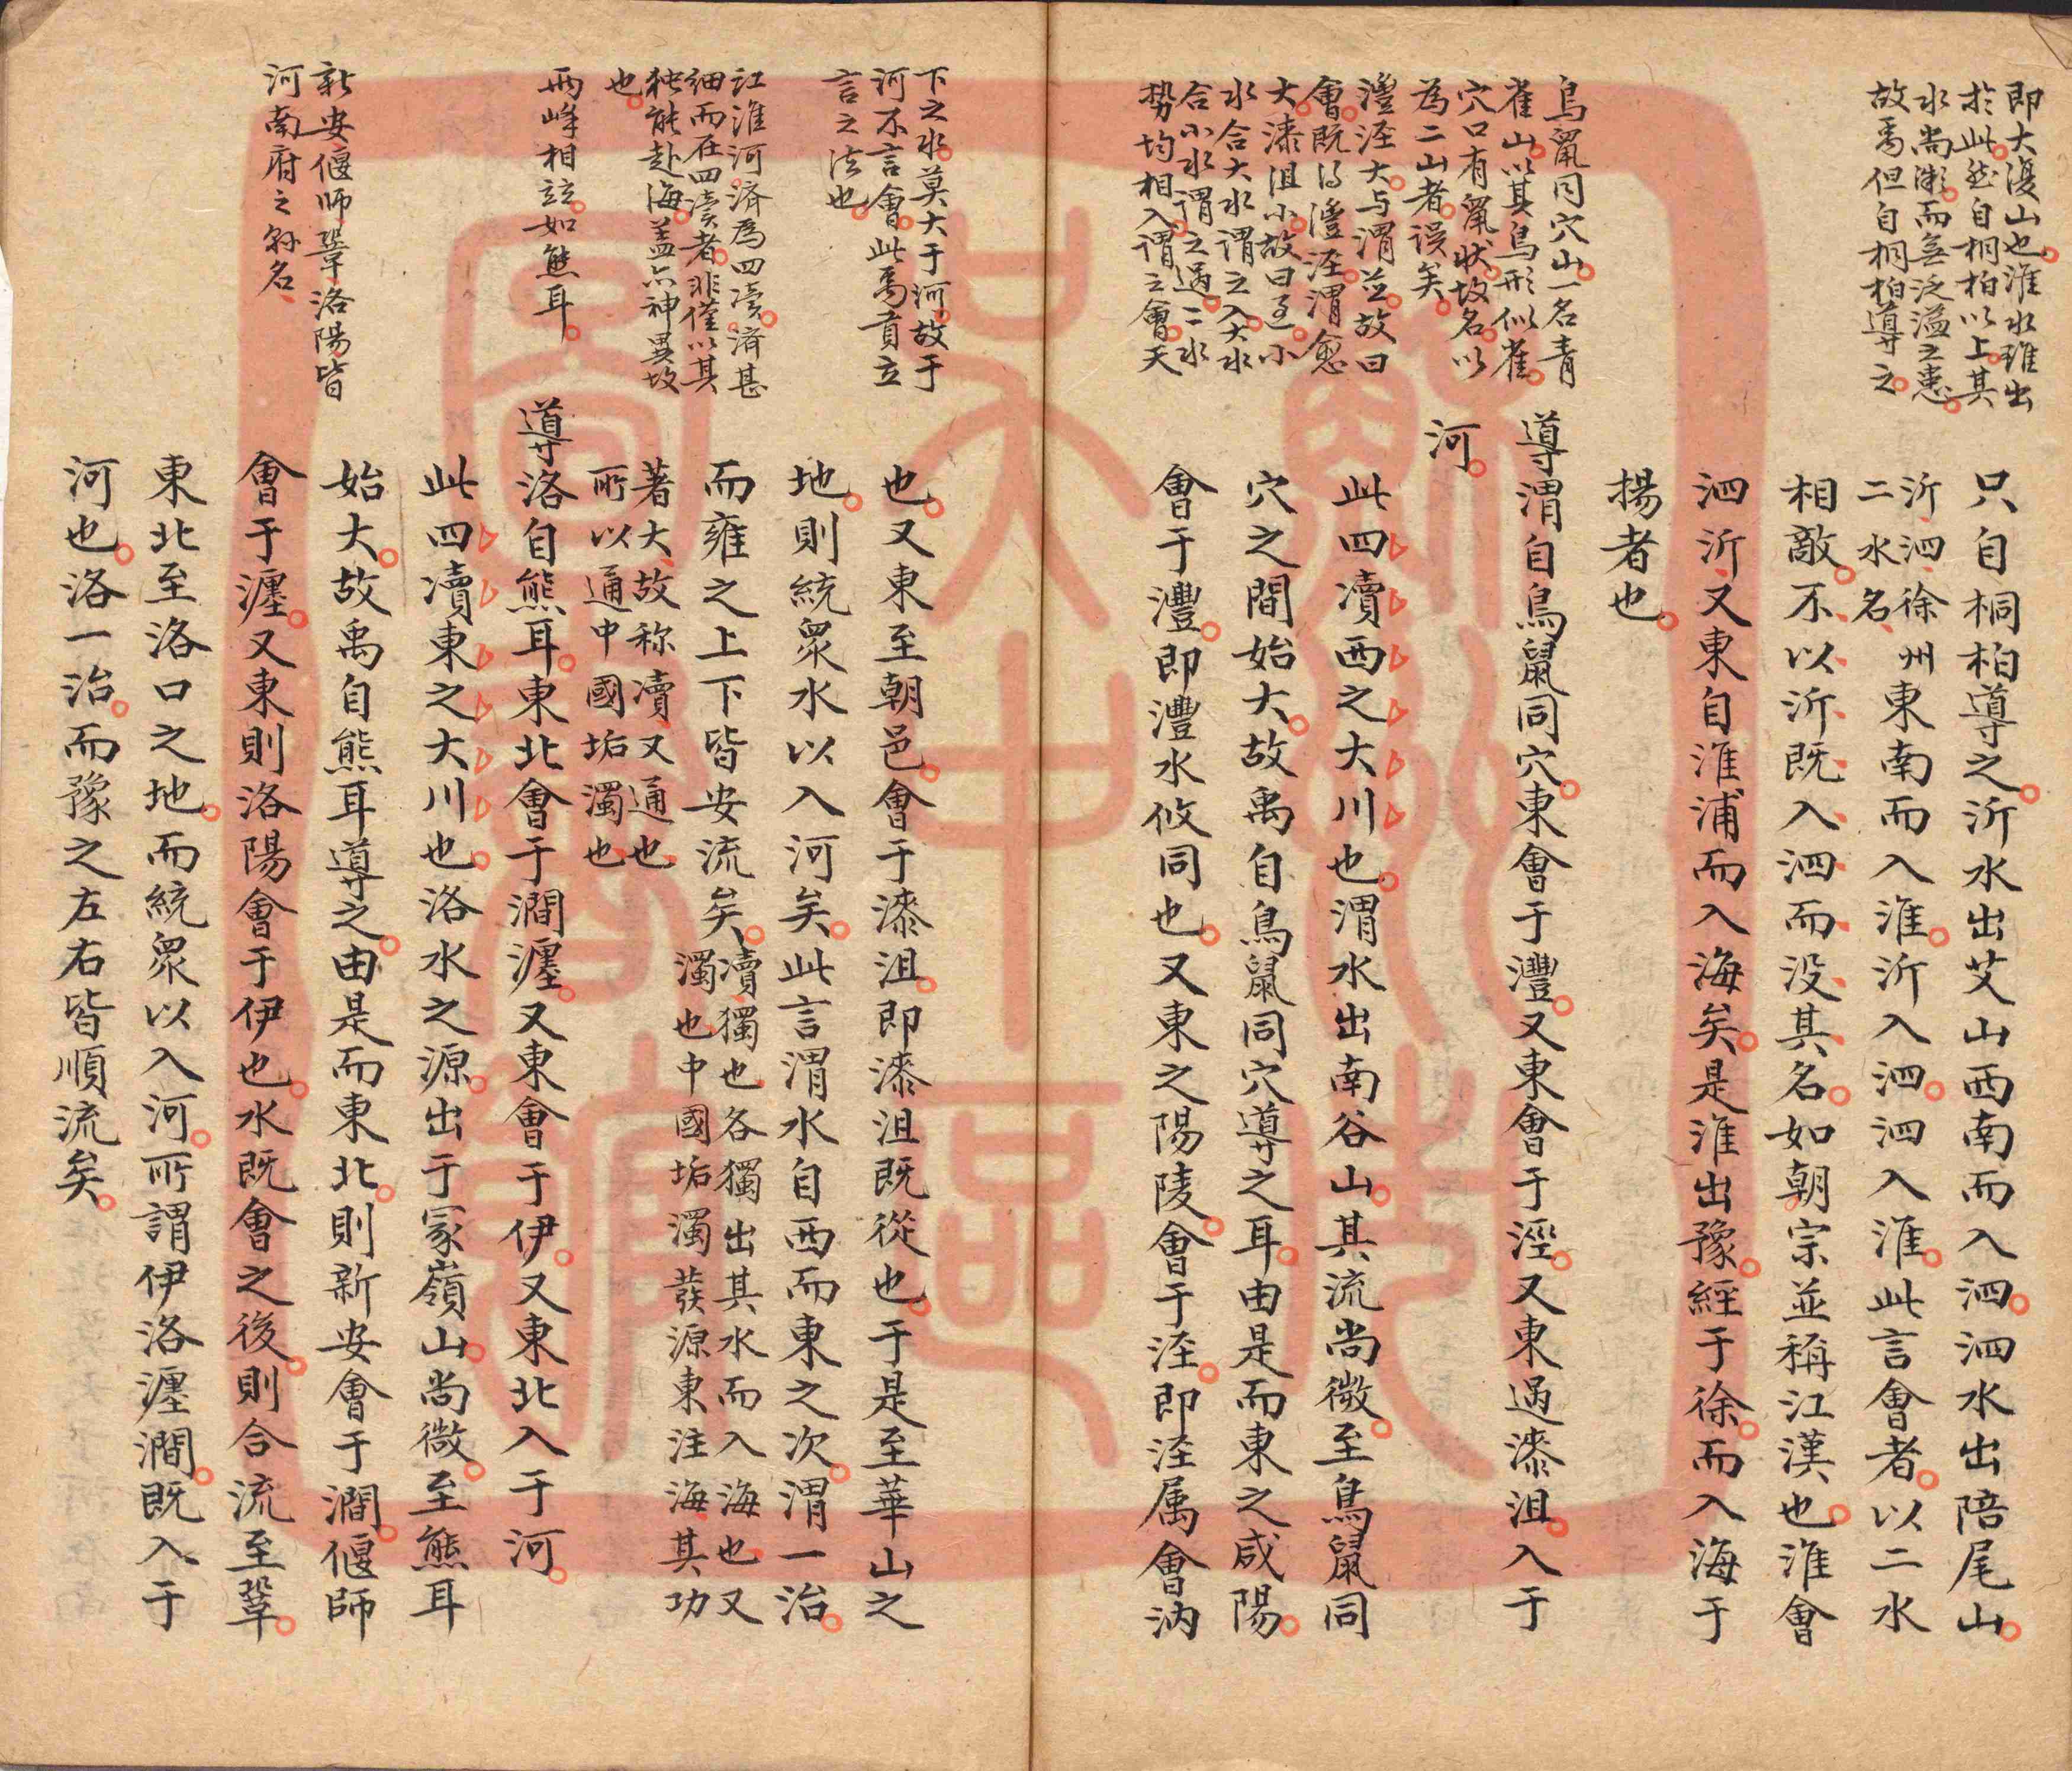 即大復山也淮水雖出
於此然自桐柏以上其
水尚漸而無泛溢之患
故禹但自桐柏導之
只自桐柏導之沂水出艾山西南而入泗泗水出陪尾山
沂泗徐州
二水名
東南而入淮沂入泗泗入淮此言會者以二水
相敵不以沂既入泗而没其名如朝宗並稱江漢也淮會
泗沂又東自淮浦而入海矣是淮出豫經于徐而入海于
揚者也
鳥鼠同穴山一名青
雀山以其鳥形似雀
穴口有鼠状故名以
為二山者误矣
導渭自鳥鼠同穴東會于灃又東會于涇又東過漆沮入于
河
灃涇大与渭並故曰
會既得灃涇渭愈
大漆沮小故曰過小
水合大水謂之入大水
合小水謂之過二水
势均相入謂之會天
此四瀆西之大川也渭水出南谷山其流尚微至鳥鼠同
穴之間始大故禹自鳥鼠同穴導之耳由是而東之咸陽
會于灃即灃水攸同也又東之陽陵會于涇即涇属會汭
下之水莫大于河故于
河不言會此禹貢立
言之法也
也又東至朝邑會于漆沮即漆沮既從也于是至華山之
地則統衆水以入河矣此言渭水自西而東之次渭一治
而雍之上下皆安流矣
瀆獨也各獨出其水而入海也又
濁也中國垢濁發源東注海其功
著大故称瀆又通也
所以通中國垢濁也
江淮河濟為四瀆濟甚
细而在四瀆者非僅以其
独能赴海盖亦神異故
也
兩峰相竝如熊耳
導洛自熊耳東北會于澗瀍又東會于伊又東北入于河
此四瀆東之大川也洛水之源出于冢嶺山尚微至熊耳
始大故禹自熊耳導之由是而東北則新安會于澗偃師
會于瀍又東則洛陽會于伊也水既會之後則合流至鞏
東北至洛口之地而統衆以入河所謂伊洛瀍澗既入于
河也洛一治而豫之左右皆順流矣
新安偃師鞏洛陽皆
河南府之縣名